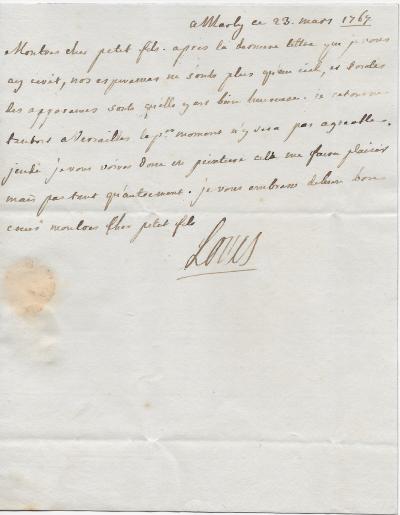 a Marly ce 23. mars 1767
Mon tres cher petit fils. apres la derniere lettre que je vous
ay écrit, nos esperances ne sont plus qu'au ciel, et toutes
les apparences sont qu'elle y est bien heureuse. je retourne
tantost a Versailles le pr. moment n'y sera pas agreable.
jeudi je vous voires donc en peinture cela me faira plaisir
mais pas tant qu'autrement. je vous embrasse de bien bon
coeur mon tres cher petit fils
Louis